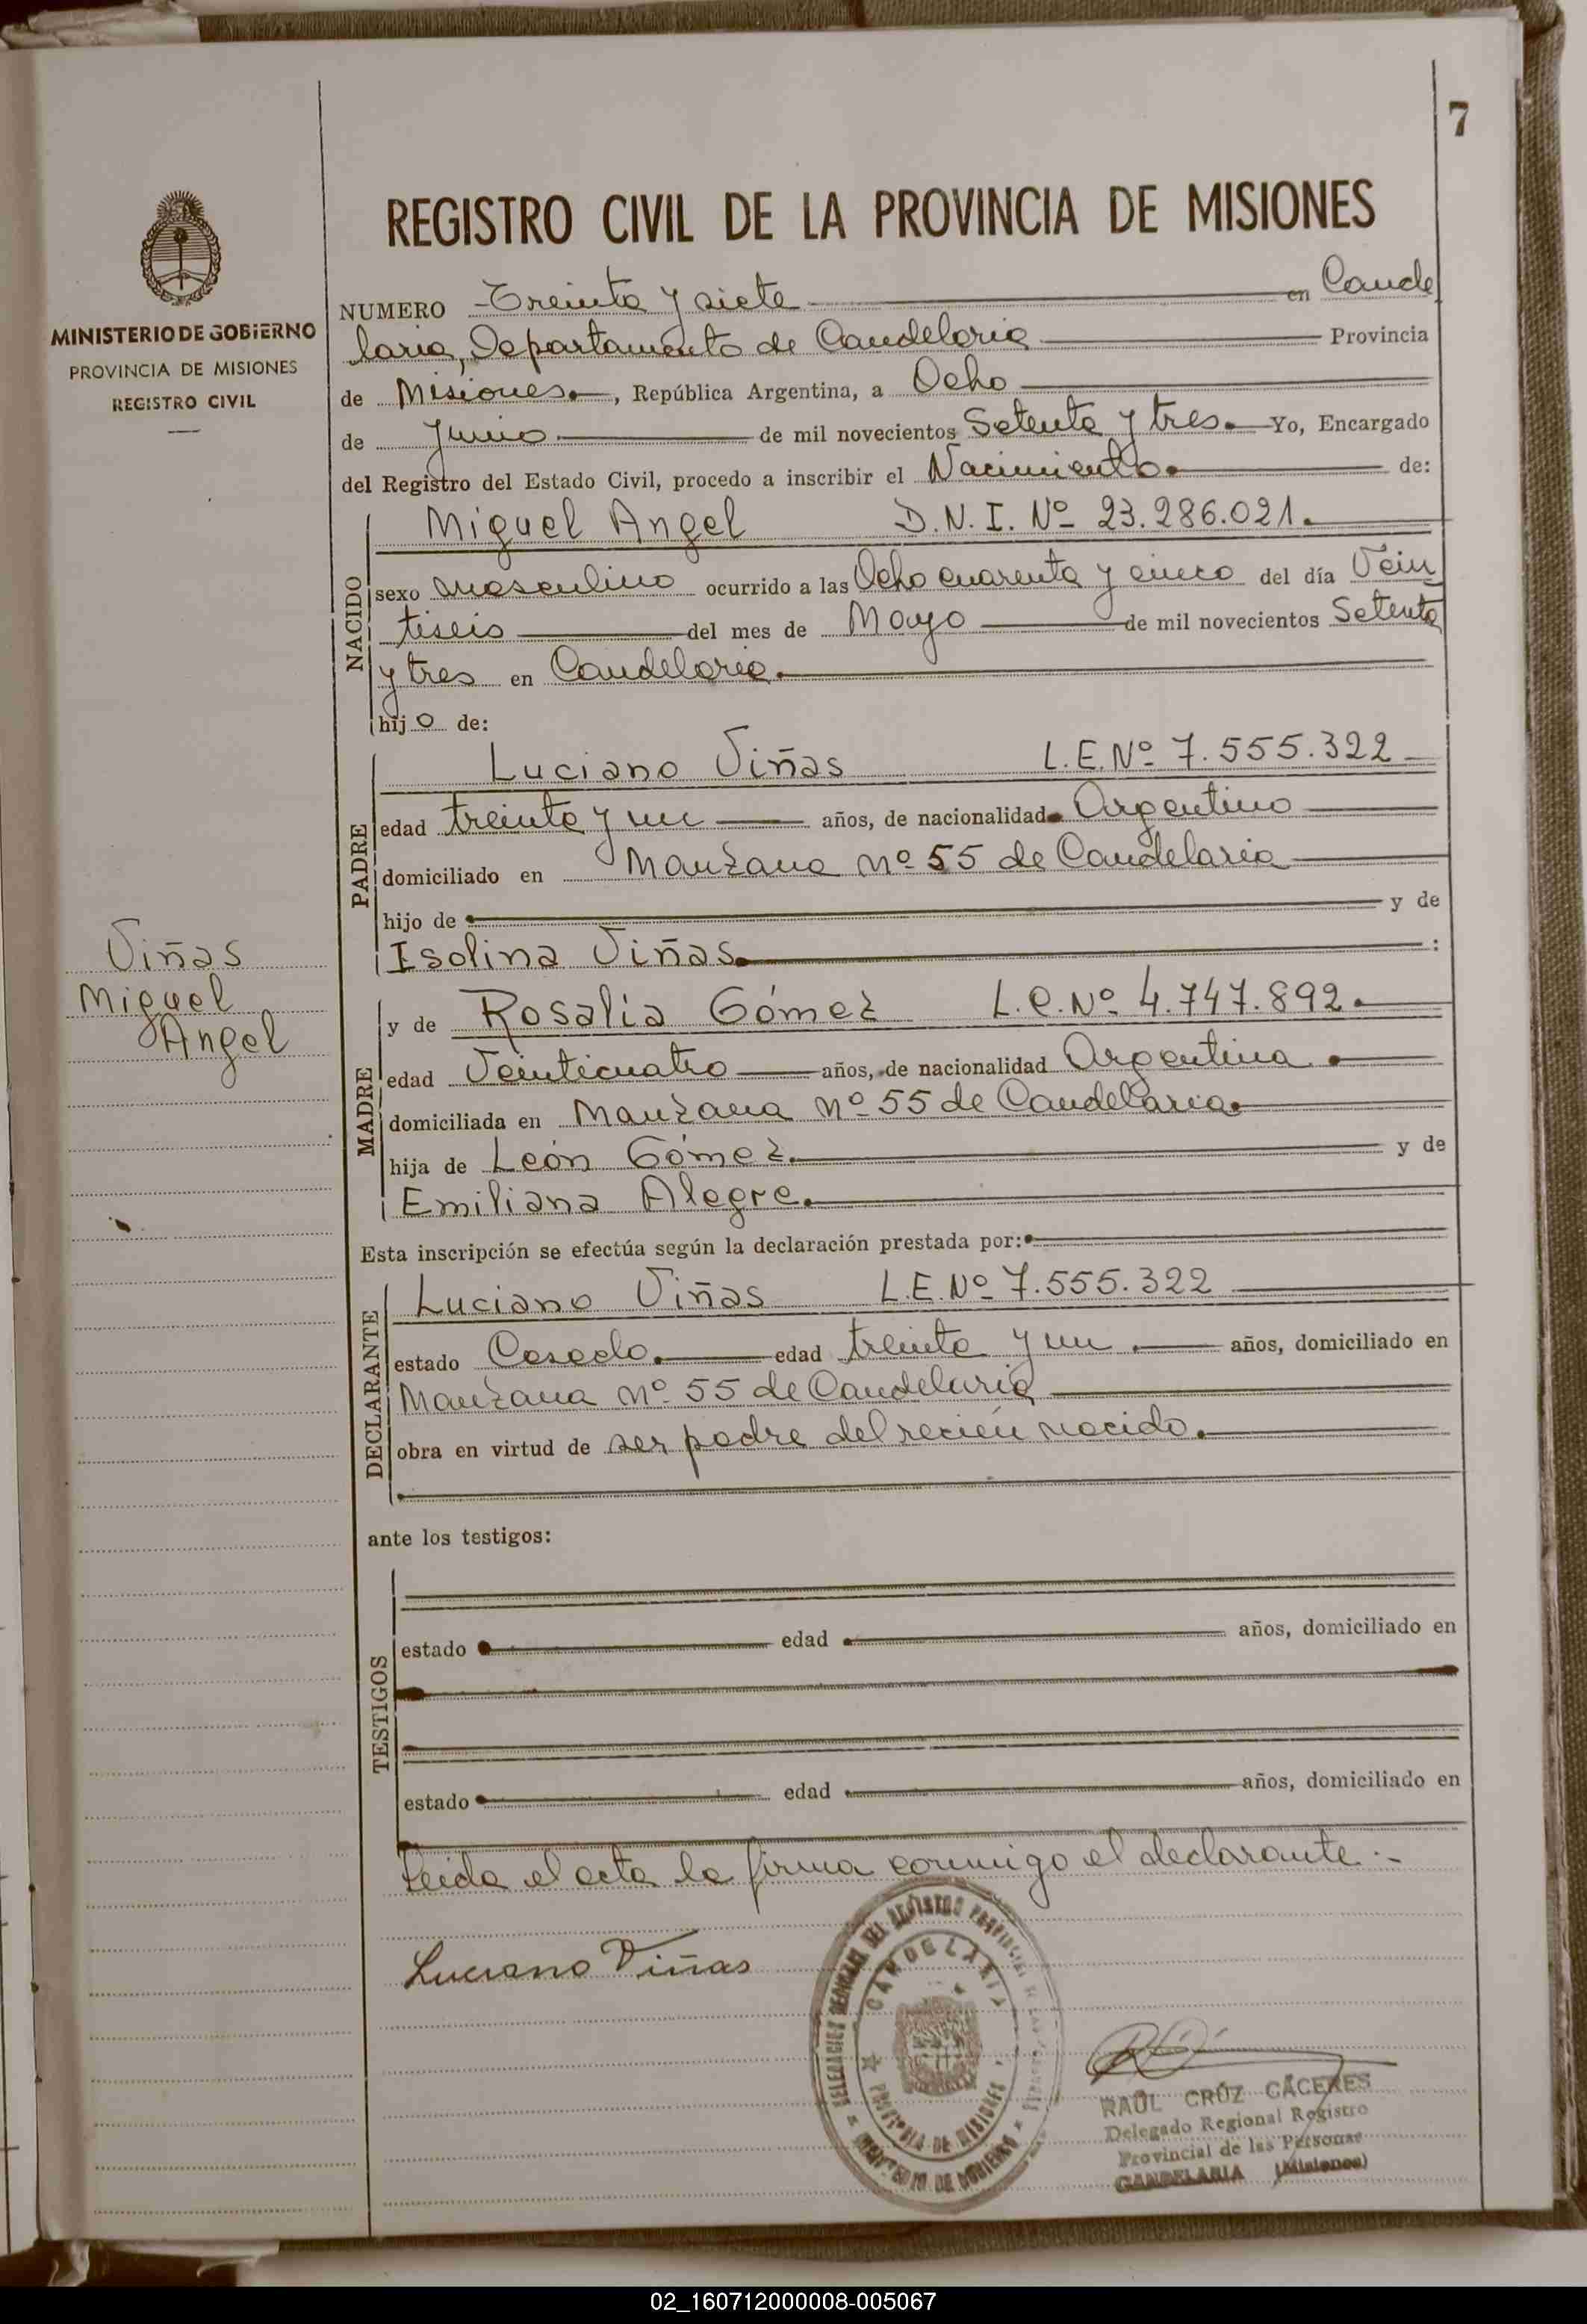 7
REGISTRO CIVIL DE LA PROVINCIA DE MISIONES
MINISTERIO DE GOBIERNO
PROVINCIA DE MISIONES
REGISTRO CIVIL
NUMERO Treinta y siete en Cande
laria, Departamento de Candelaria Provincia
de Misiones., República Argentina, a Ocho
de Junio de mil novecientos Setenta y tres. Yo, Encargado
del Registro del Estado Civil, procedo a inscribir el Nacimiento. de:
NACIDO
Miguel Angel D.N.I. Nº 23.286.021.
sexo masculino ocurrido a las Ocho cuarenta y cinco del día Vein
tiseis del mes de Mayo de mil novecientos Setenta
y tres en Candelaria.
hijo de:
PADRE
Luciano Viñas L.E.Nº 7.555.322
edad treinta y un años, de nacionalidad Argentino
domiciliado en Manzana nº 55 de Candelaria
hijo de y de
Isolina Viñas. :
Viñas
Miguel
Angel
MADRE
y de Rosalia Gómez L.C.Nº 4.747.892.
edad Veinticuatro años, de nacionalidad Argentina.
domiciliada en Manzana nº 55 de Candelaria.
hija de León Gómez. y de
Emiliana Alegre.
Esta inscripción se efectúa según la declaración prestada por:
DECLARANTE
Luciano Viñas L.E.Nº 7.555.322
estado Casado. edad treinta y un. años, domiciliado en
Manzana nº 55 de Candelaria
obra en virtud de ser padre del recién nacido.
ante los testigos:
TESTIGOS
estado edad años, domiciliado en
estado edad años, domiciliado en
Leida el acta la firma conmigo el declarante.-
Luciano Viñas
CANDELARIA
PROVINCIA DE MISIONES
MINISTERIO DE GOBIERNO
RAÚL CRÚZ CÁCERES
Delegado Regional Registro
Provincial de las Personas
CANDELARIA (Misiones)
02_160712000008-005067